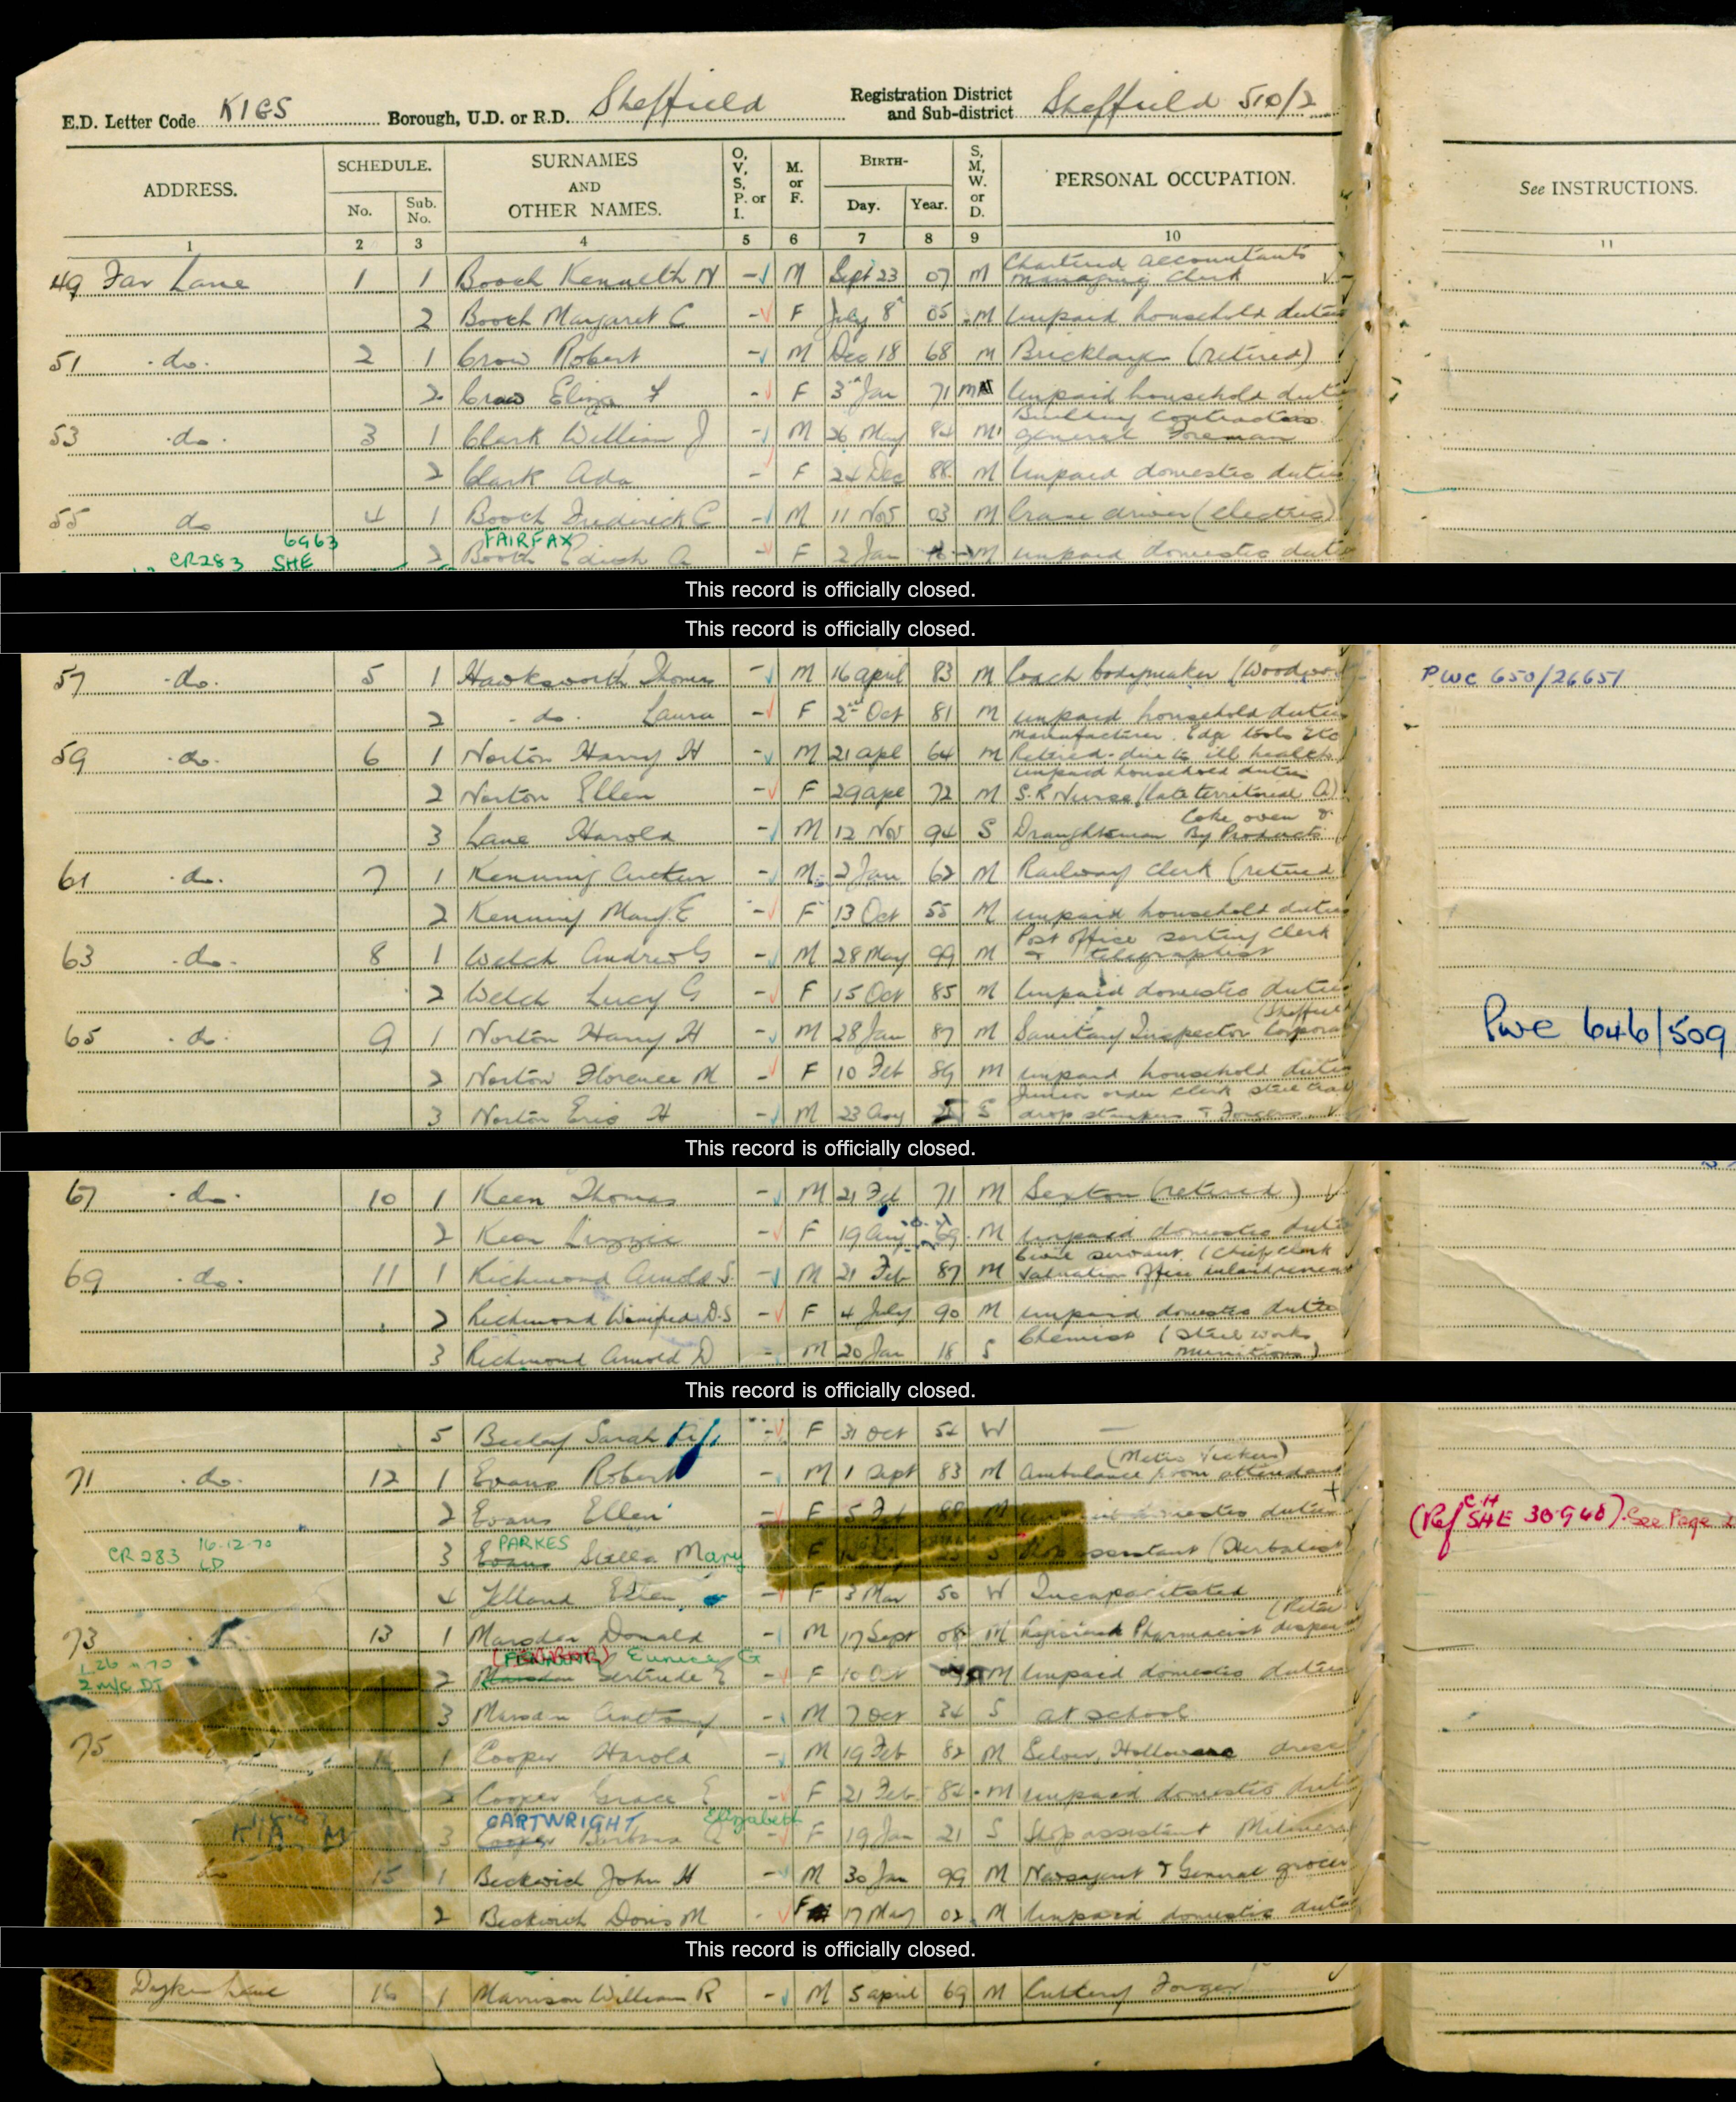 E.D. Letter Code KIGS Borough, U.D. or R.D. Sheffield Registration District and Sub-district Sheffield 510/2
ADDRESS. SCHEDULE. No. Sub. No. SURNAMES AND OTHER NAMES. O, V, S, P. or I. M. or F. BIRTH- Day. Year. S, M, W. or D. PERSONAL OCCUPATION. See INSTRUCTIONS.
1 2 3 4 5 6 7 8 9 10 11
49 Far Lane 1 1 Booth Kenneth N - M Sept 23 07 M Chartered Accountants Managing Clerk
2 Booth Margaret C - F July 8 05 M Unpaid household duties
51 do. 2 1 Crow Robert - M Dec 18 68 M Bricklayer (retired)
2 Crow Eliza F - F 3 Jan 71 M Unpaid household duties
53 do. 3 1 Clark William J - M 26 May 84 M Building Contractors General Foreman
2 Clark Ada - F 24 Dec 88 M Unpaid domestic duties
55 do 4 1 Booth Frederick C - M 11 Nov 03 M Crane driver (electric)
6963 FAIRFAX
CR283 SHE 2 Booth Edith A - F 2 Jan M unpaid domestic duties
This record is officially closed.
This record is officially closed.
57 do. 5 1 Hawksworth Thomas - M 16 April 83 M Coach bodymaker (Woodwor PWC 650/26651
2 do. Laura - F 2nd Oct 81 M unpaid household duties
59 do. 6 1 Norton Harry H - M 21 Apl 64 M Manufacturer. Edge tools Etc Retired. due to ill health
2 Norton Ellen - F 29 Apl 72 M unpaid household duties S.R Nurse (late territorial A)
3 Lane Harold - M 12 Nov 94 S Draughtsman Coke oven & By Products
61 do. 7 1 Kenning Arthur - M 2 Jan 62 M Railway Clerk (retired
2 Kenning Mary E - F 13 Oct 55 M unpaid household duties
63 do. 8 1 Welch Andrew G - M 28 May 99 M Post office sorting Clerk & telegraphist
2 Welch Lucy G - F 15 Oct 85 M Unpaid domestic duties
65 do. 9 1 Norton Harry H - M 28 Jan 87 M Sanitary Inspector (Sheffield Corporat PWC 646/509
2 Norton Florence M - F 10 Feb 89 M unpaid household duties
3 Norton Eric H - M 23 Aug S Junior order clerk steel trade drop stampers & Forgers
This record is officially closed.
67 do. 10 1 Keen Thomas - M 21 Feb 71 M Sexton (retired)
2 Keen Lizzie - F 19 Aug 69 M unpaid domestic duties
69 do. 11 1 Richmond Arnold S. - M 21 Feb 87 M Civil servant (Chief Clerk Valuation Office inland revenue
2 Richmond Winifred D.S - F 4 July 90 M unpaid domestic duties
3 Richmond Arnold D - M 20 Jan 18 S Chemist (Steel works munitions)
This record is officially closed.
5 Beeley Sarah - F 31 Oct 54 W -
71 do. 12 1 Evans Robert - M 1 Sept 83 M (Metro Vickers) Ambulance room attendant
2 Evans Ellen - F 5 Feb 88 M domestic duties
CR283 16.12.70 LD PARKES (Ref C.H SHE 30.9.40). See Page 2
3 Evans Stella Mary F S assistant (Herbalist
4 Jlland Ellen - F 3 Mar 50 W Incapacitated
73 13 1 Marsden Donald - M 17 Sept 08 M Registered Pharmacist dispen (Retai
Eunice G
2 Marsden Gertrude E - F 10 Oct M Unpaid domestic duties
3 Marsden Anthony - M 7 Oct 34 S at school
75 14 1 Cooper Harold - M 19 Feb 82 M Silver, Holloware dress
2 Cooper Grace E - F 21 Feb 84 M unpaid domestic duties
CARTWRIGHT Elizabeth
3 Cooper Barbara E - F 19 Jan 21 S Shop assistant Millinery
do 15 1 Beckwith John H - M 30 Jan 99 M Newsagent & General grocer
2 Beckwith Doris M - F 17 May 02 M Unpaid domestic duties
This record is officially closed.
Dykes Lane 16 1 Marrison William R - M 5 April 69 M Cutlery Forger